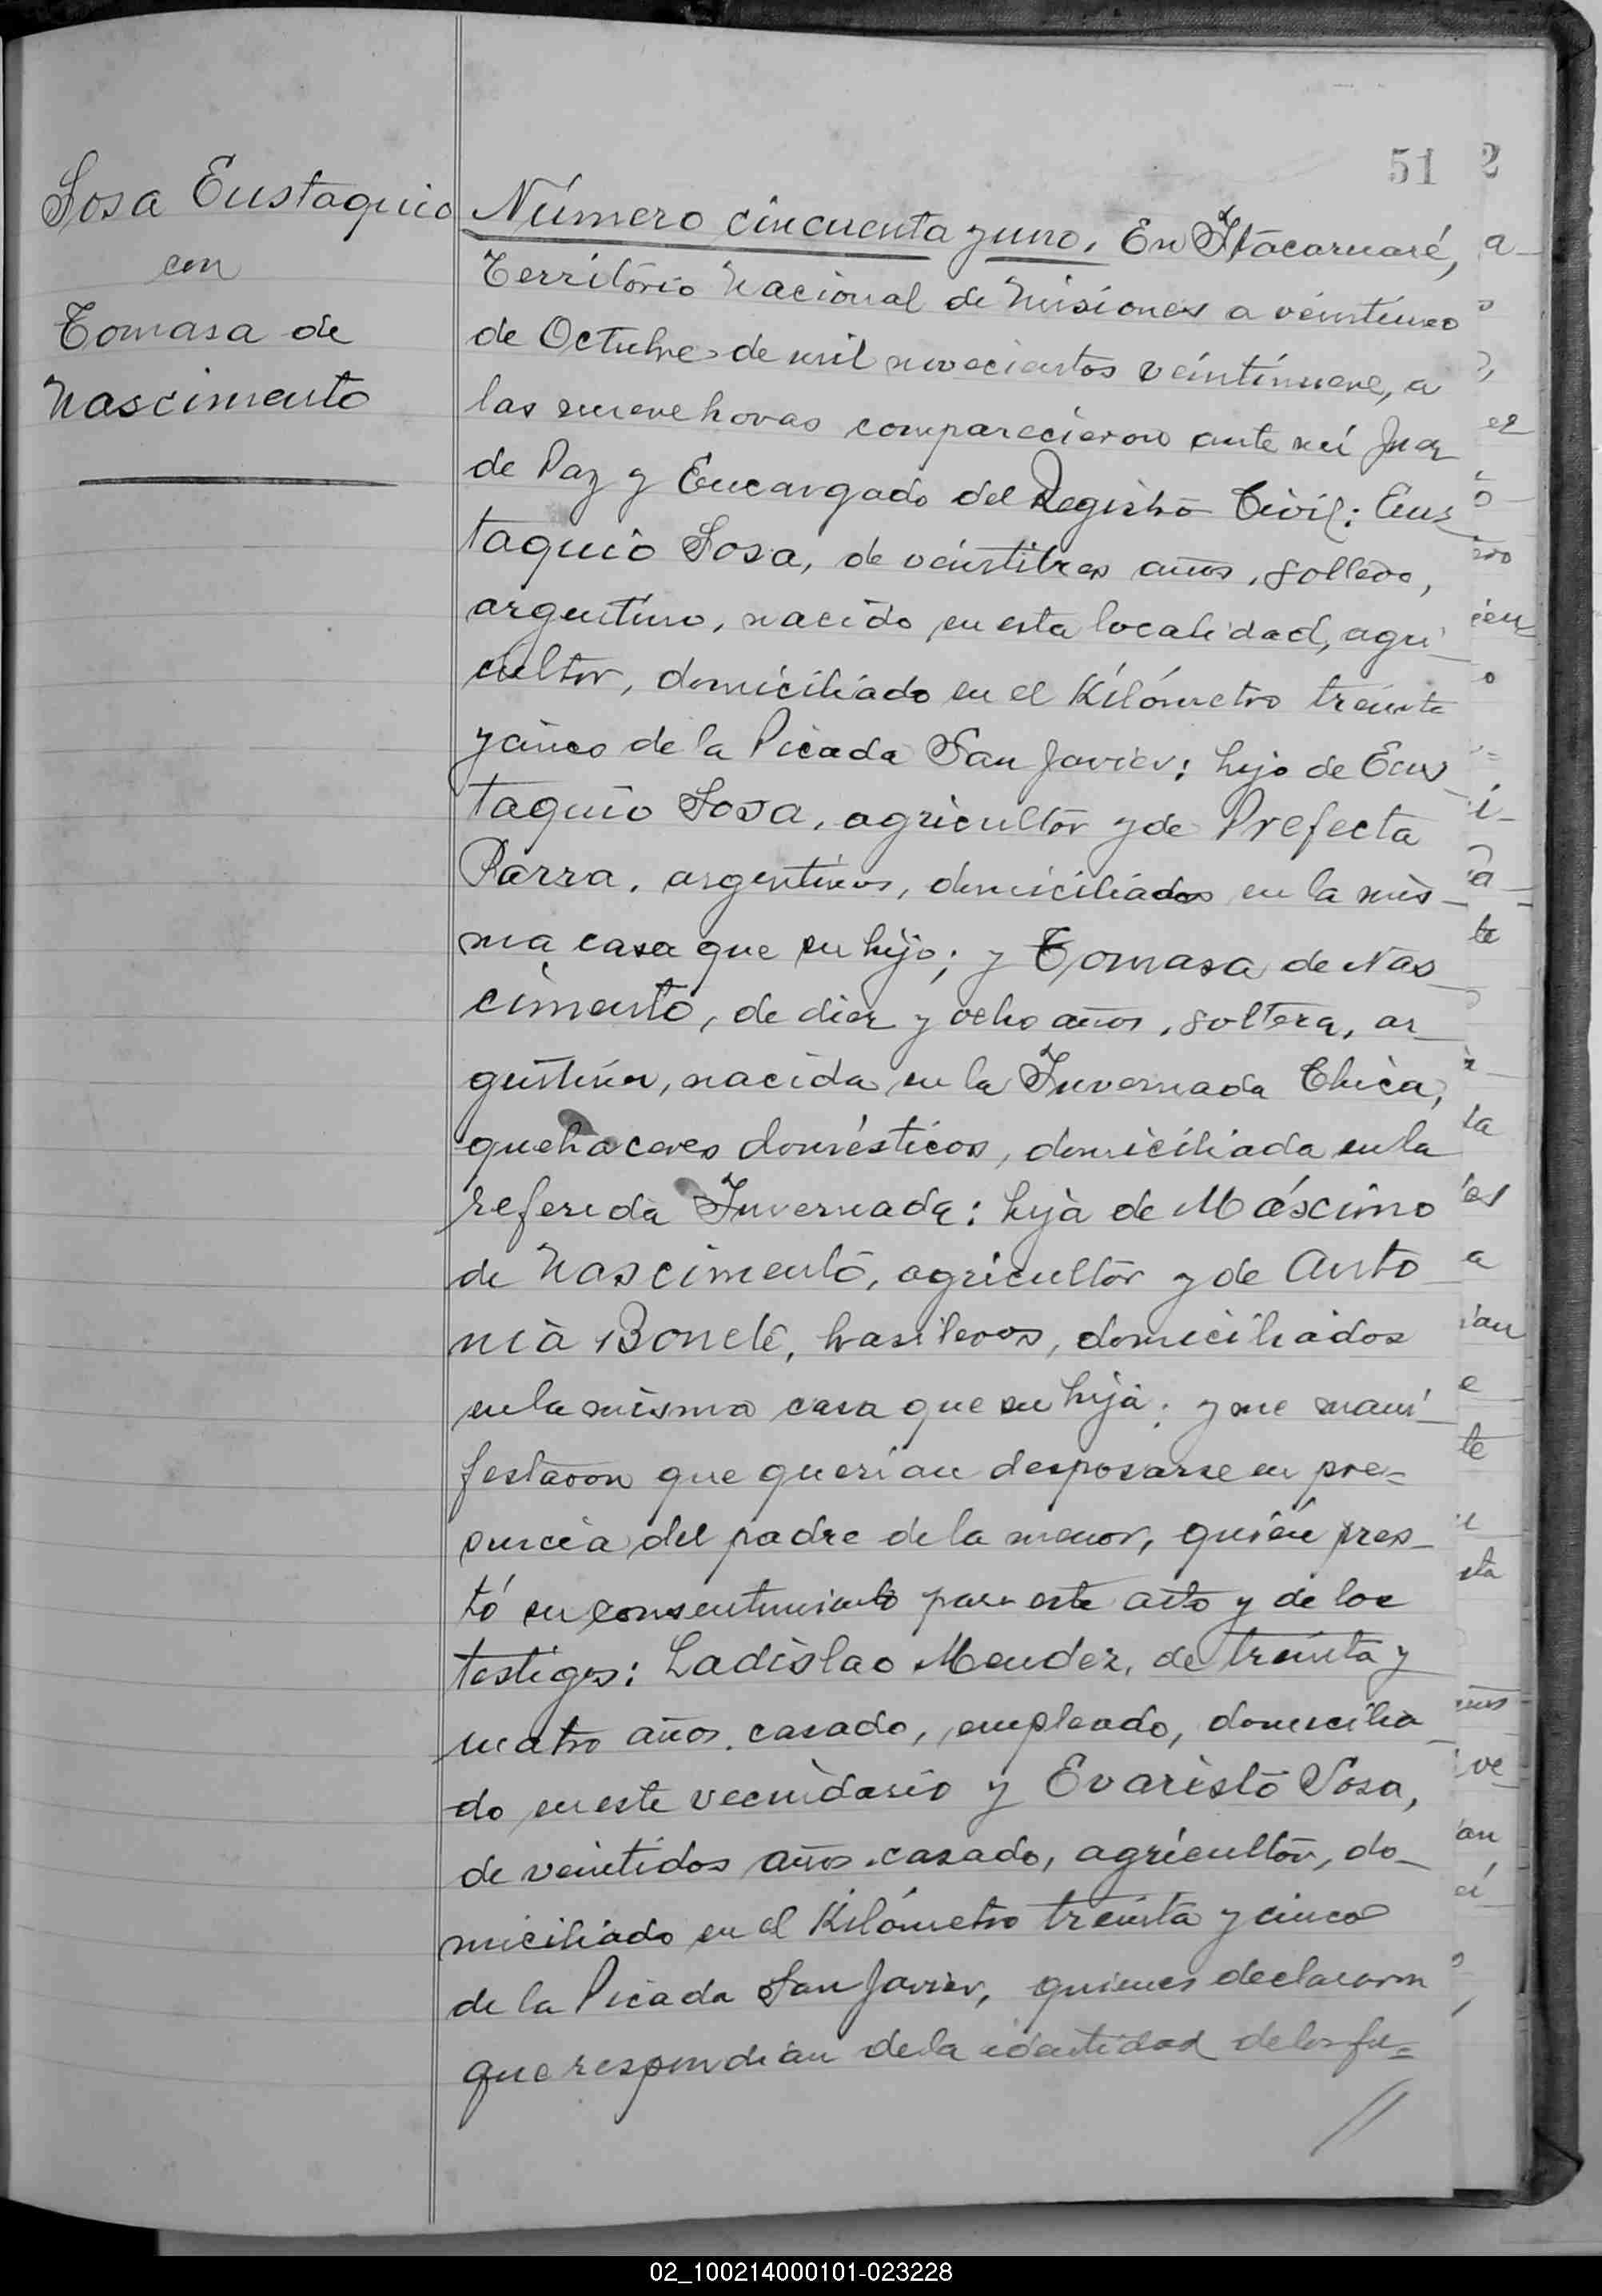 51 2
Sosa Eustaquio
con
Tomasa de
Nascimento
Número cincuenta y uno. En Itacaruaré,
Territorio Nacional de Misiones a veintiuno
de Octubre de mil novecientos veintinueve, a
las nueve horas comparecieron ante mí Juez
de Paz y Encargado del Registro Civil: Eus_
taquio Sosa, de veintitres años, soltero,
argentino, nacido en esta localidad, agri_
cultor, domiciliado en el Kilómetro treinta
y cinco de la Picada San Javier; hijo de Eus_
taquio Sosa, agricultor y de Prefecta
Parra, argentinos, domiciliados en la mis_
ma casa que su hijo; y Tomasa de Nas_
cimento, de diez y ocho años, soltera, ar_
gentina, nacida en la Invernada Chica,
quehaceres domésticos, domiciliada en la
referida Invernada: hija de Máscimo
de Nascimento, agricultor y de Anto_
nia Boneté, brasileros, domiciliados
en la misma casa que su hija; y me mani_
festaron que querian desposarse en pre=
sencia del padre de la menor, quién pres_
tó su consentimiento para este acto y de los
testigos: Ladislao Mendez, de treinta y
cuatro años, casado, empleado, domicilia_
do en este vecindario y Evaristo Sosa,
de veintidos años, casado, agricultor, do_
miciliado en el Kilómetro treinta y cinco
de la Picada San Javier, quienes declararon
que respondian de la identidad de los fu=
//
02_100214000101-023228